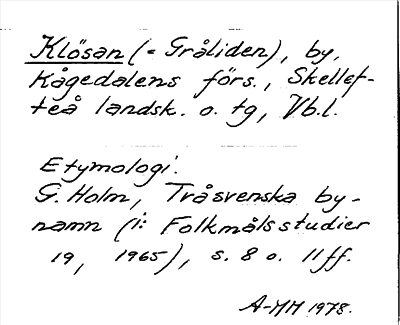 Klösan (= Gråliden), by,
Kågedalens förs., Skellef-
teå landsk. o. tg, Vb.l.
Etymologi.
G. Holm, Tråsvenska by-
namn (i: Folkmålsstudier
19, 1965), s. 8 o. 11 ff.
A-MH 1978.